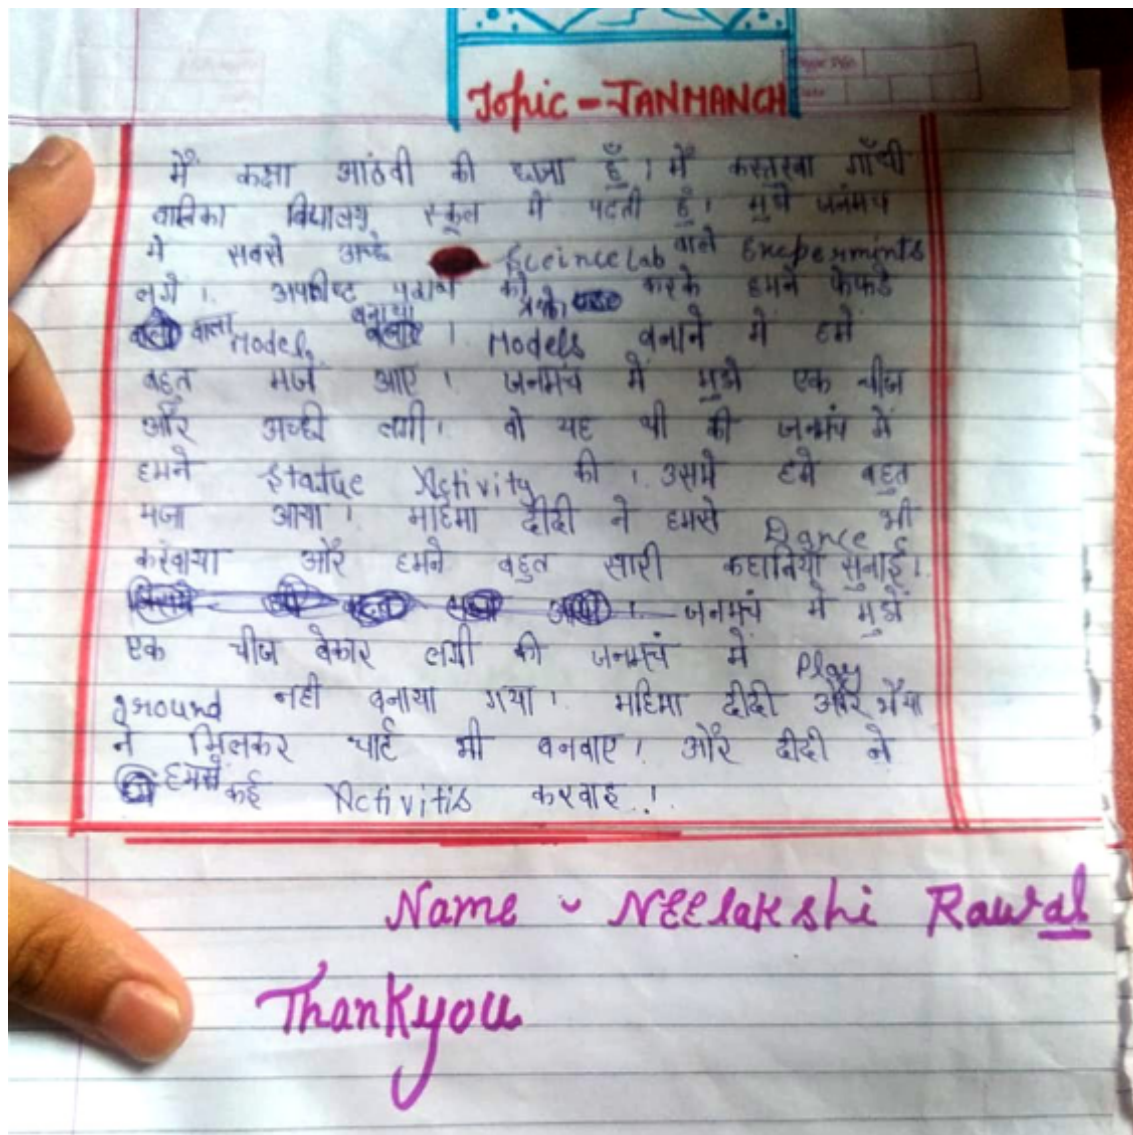 Topic - JANMANCH
मैं कक्षा आठंवी की छात्रा हूँ । मैं कस्तूरबा गाँधी
बालिका विधालय स्कूल में पढती हूँ । मुझे जनंमच
मे सबसे अच्छे Sceince Lab वाले Exeperments
लगे । अपशिष्ट पदार्थ को करके हमने फेफडे
वाला Model बनाया । Models बनाने में हमें
बहुत मजे आए । जनमंच में मुझे एक चीज
और अच्छी लगी । वो यह थी की जनमंच में
हमने Statue Activity की । उसमे हमे बहुत
मजा आया । महिमा दीदी ने हमसे Dance भी
करवाया और हमने बहुत सारी कहानियाँ सुनाई ।
जनमचं मे मुझे
एक चीज बेकार लगी की जनमचं में Play
ground नही बनाया गया । महिमा दीदी और भैया
ने मिलकर चार्ट भी बनवाए । और दीदी ने
हमसे कई Activitis करवाई . !
Name - NEElakshi Rawal
Thankyou